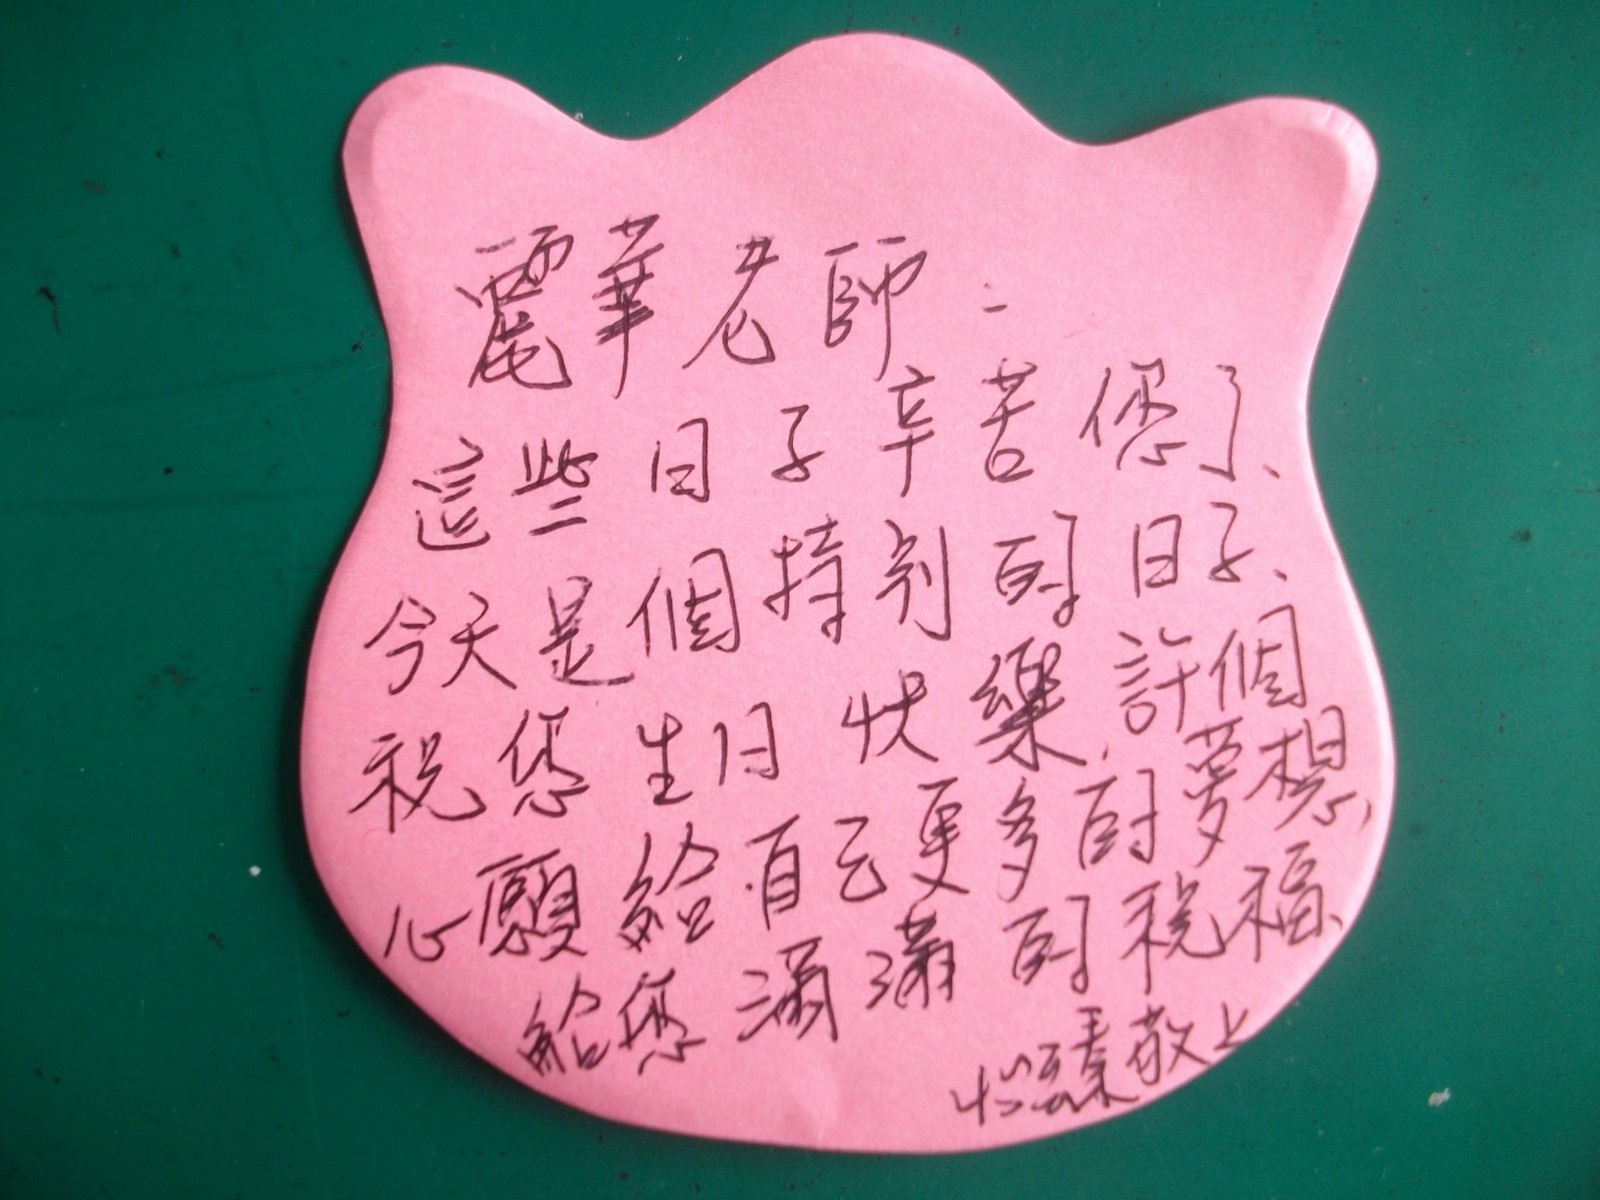 麗華老師：
這些日子辛苦您了、
今天是個特別的日子、
祝您生日快樂，許個
心願給自己更多的夢想、
給您滿滿的祝福、
怡臻敬上